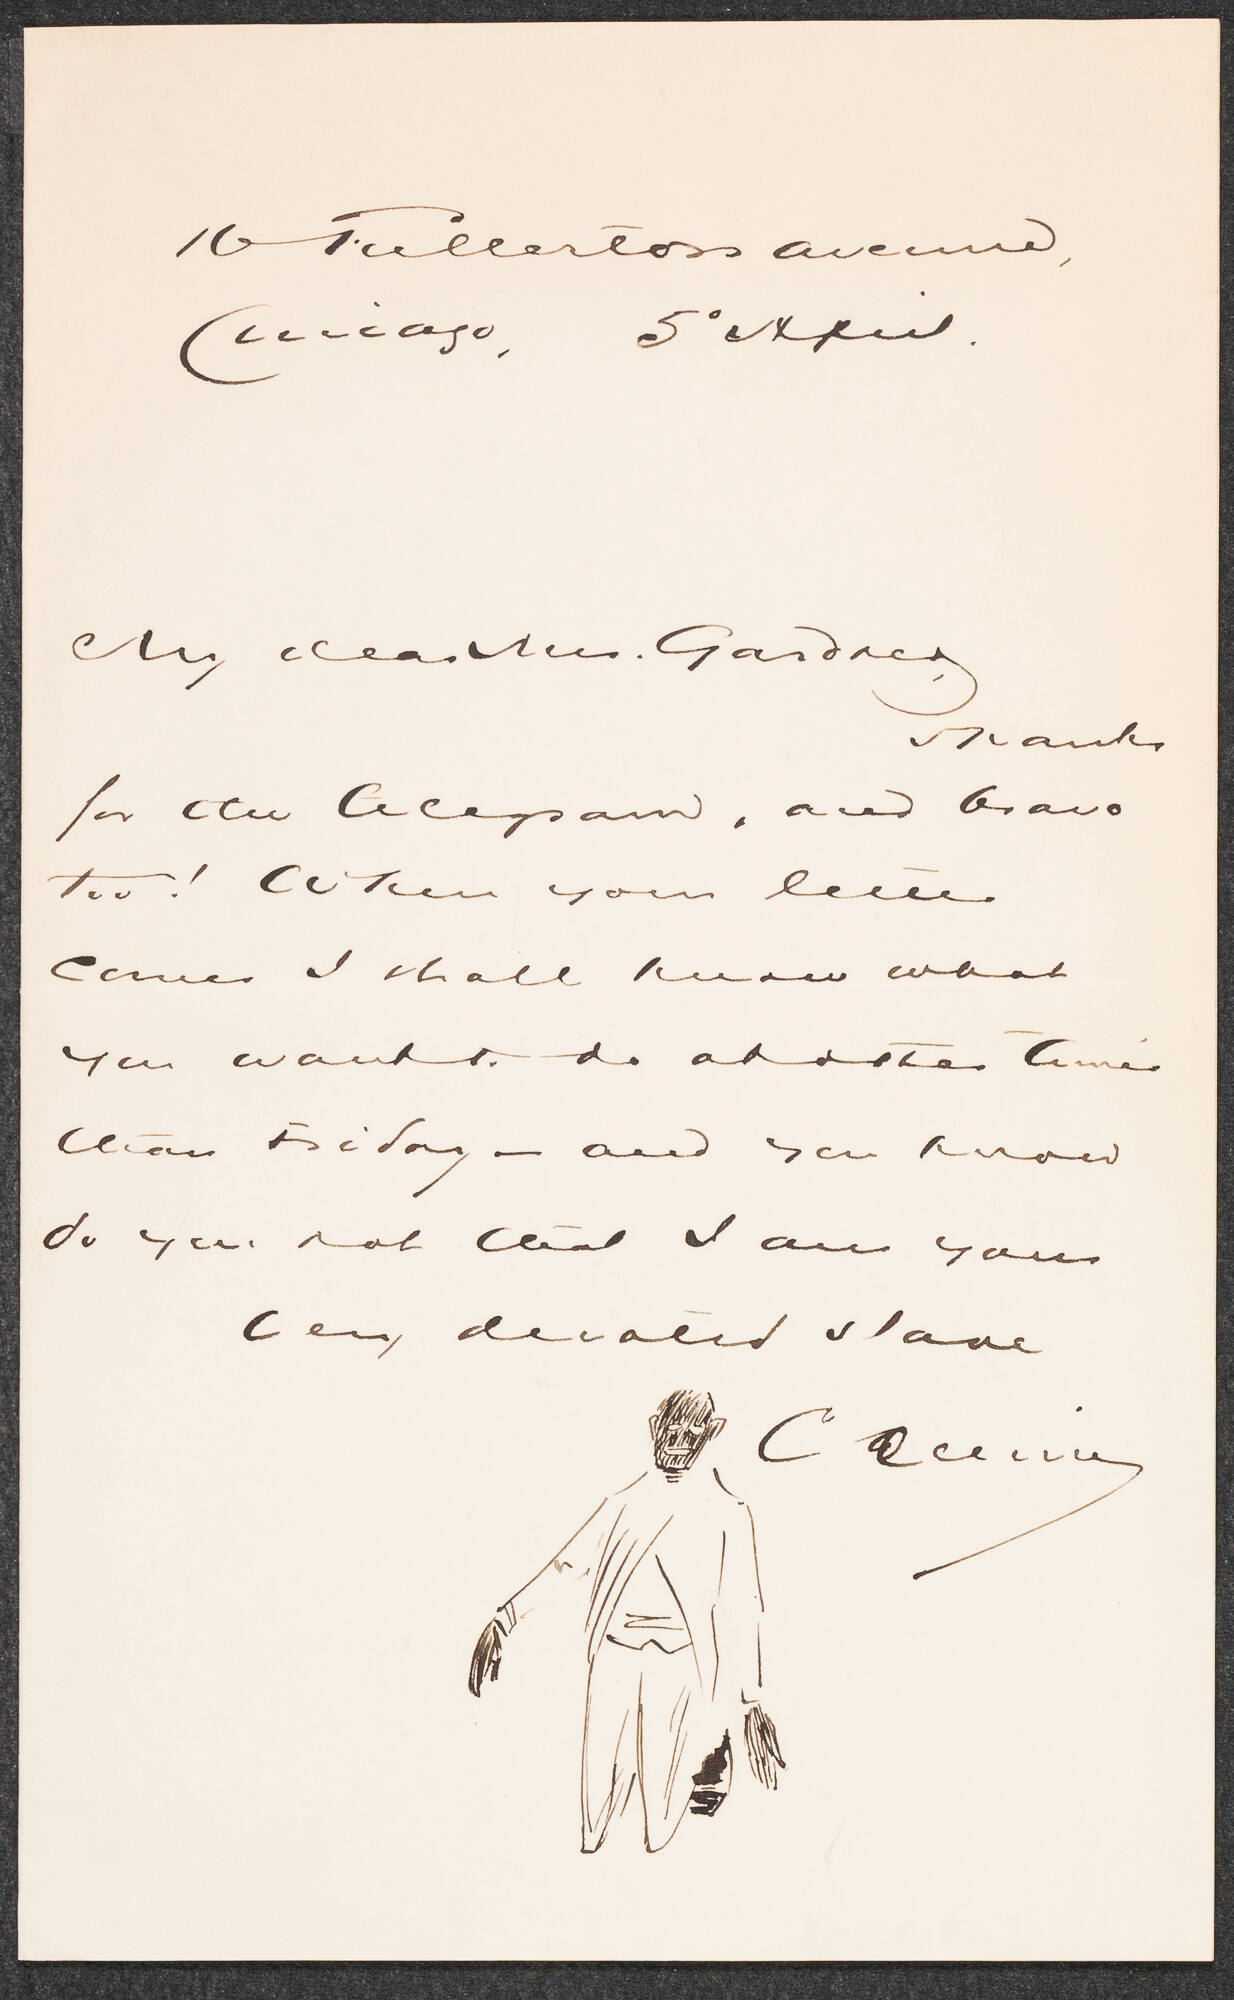 16 Fullerton avenue,
Chicago, 5° April.
My dear Mrs. Gardner,
thanks
for the telegram, and bravo
too! When your letter
comes I shall know what
you want to do at other times
than Friday – and you know
do you not that I am your
very devoted slave